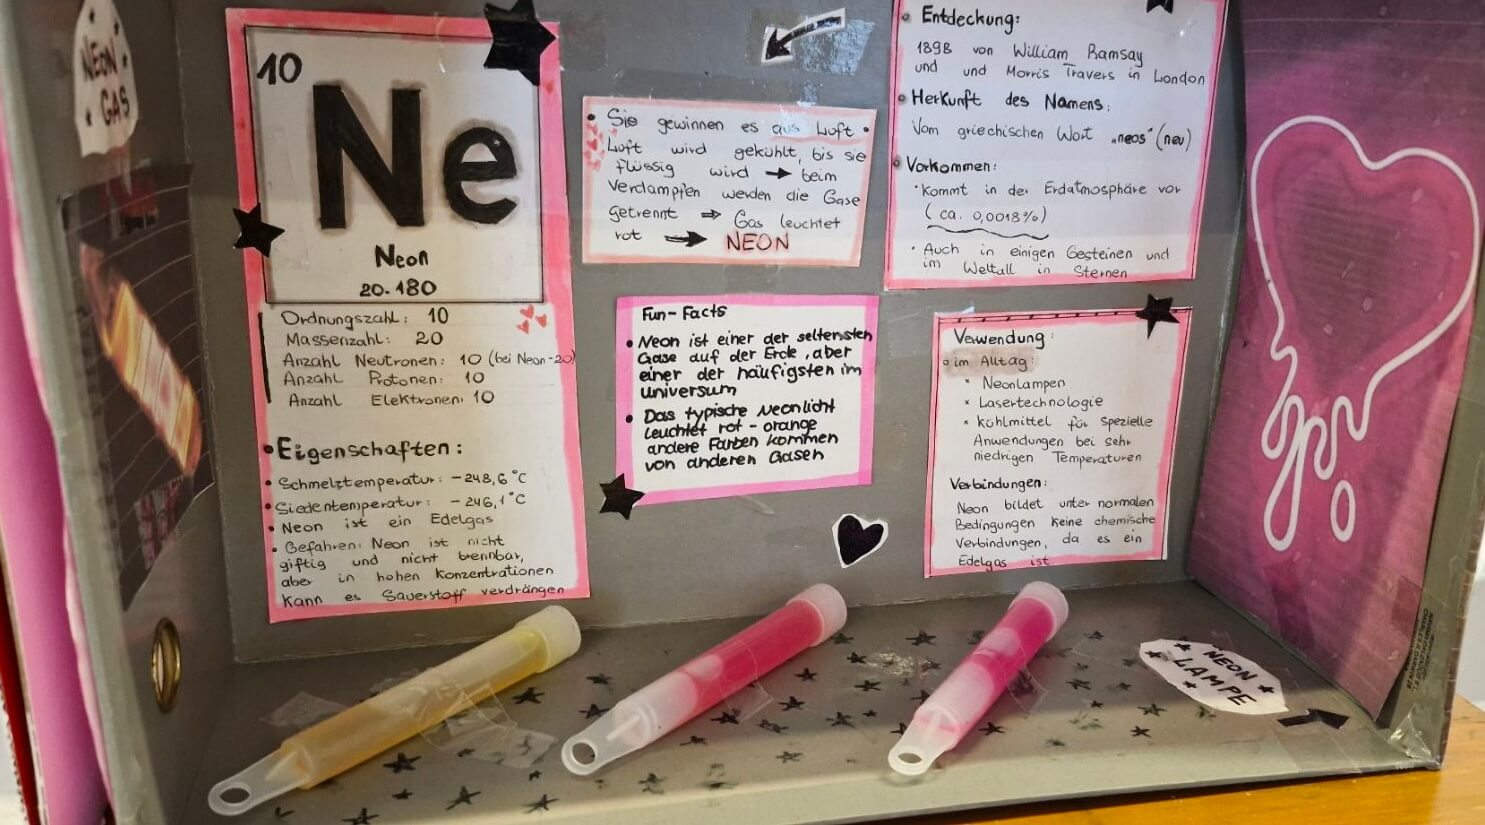 NEON
GAS
10
Ne
Neon
20.180
Ordnungszahl: 10
Massenzahl: 20
Anzahl Neutronen: 10 (bei Neon-20)
Anzahl Protonen: 10
Anzahl Elektronen: 10
• Eigenschaften:
• Schmelztemperatur: -248,6°C
• Siedentemperatur: -246,1°C
• Neon ist ein Edelgas
• Gefahren: Neon ist nicht
giftig und nicht brennbar,
aber in hohen Konzentrationen
kann es Sauerstoff verdrängen
• Sie gewinnen es aus Luft •
Luft wird gekühlt, bis sie
flüssig wird → beim
Verdampfen werden die Gase
getrennt ⇒ Gas leuchtet
rot → NEON
Fun-Facts
• Neon ist einer der seltensten
Gase auf der Erde, aber
einer der häufigsten im
universum
• Das typische Neonlicht
leuchtet rot-orange
andere Farben kommen
von anderen Gasen
• Entdeckung:
1898 von William Ramsay
und und Morris Travers in London
• Herkunft des Namens:
Vom griechischen Wort „neos" (neu)
• Vorkommen:
• kommt in der Erdatmosphäre vor
(ca. 0,0018%)
• Auch in einigen Gesteinen und
im Weltall in Sternen
Verwendung:
• im Alltag:
* Neonlampen
* Lasertechnologie
* kühlmittel für spezielle
Anwendungen bei sehr
niedrigen Temperaturen
Verbindungen:
Neon bildet unter normalen
Bedingungen keine chemische
Verbindungen, da es ein
Edelgas ist.
NEON
LAMPE